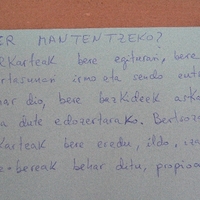 ER MANTENTZEKO?
zKarteak bere egituran, bere
rtasunan irmo eta sendo eut
har dio, bere bazKideek aska
a dute edozertarako. Bertzoz
Karteak bere eredu, ildo, iza
e-bereak behar ditu, propioa